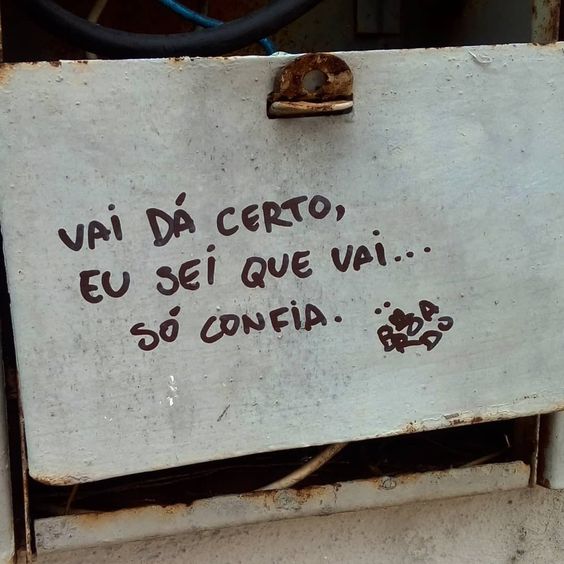 VAI DÁ CERTO,
EU SEI QUE VAI...
SÓ CONFIA.